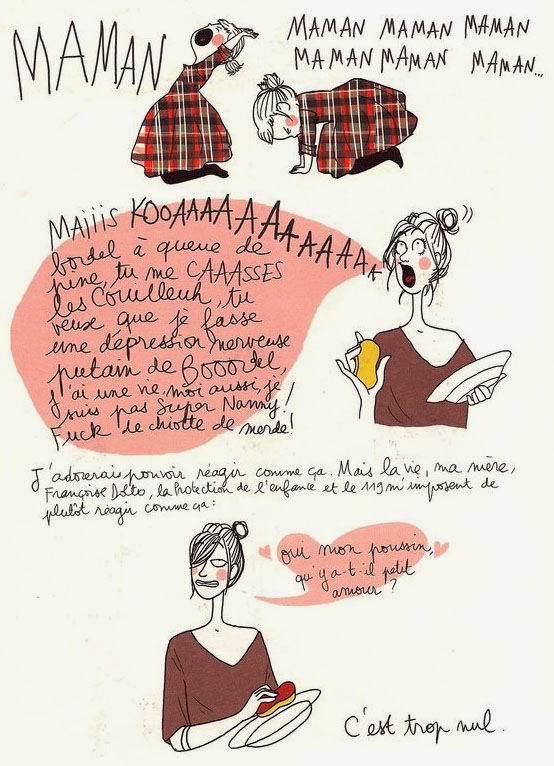 MAMAN
MAMAN MAMAN MAMAN
MAMAN MAMAN MAMAN...
MAIIIS KOOAAAAAAAAAAAAAK
bordel à queue de
pine, tu me CAAASSES
les Couilleuh, tu
veux que je fasse
une dépression nerveuse
putain de BOOORdel,
j'ai une vie, moi aussi, je
suis pas Super Nanny!
Fuck de chiotte de merde!
J'adorerais pouvoir réagir comme ça. Mais la vie, ma mère,
Françoise Dolto, la Protection de l'enfance et le 119 m'imposent de
plutôt réagir comme ça:
oui mon poussin,
qu'y a-t-il petit
amour?
C'est trop nul.